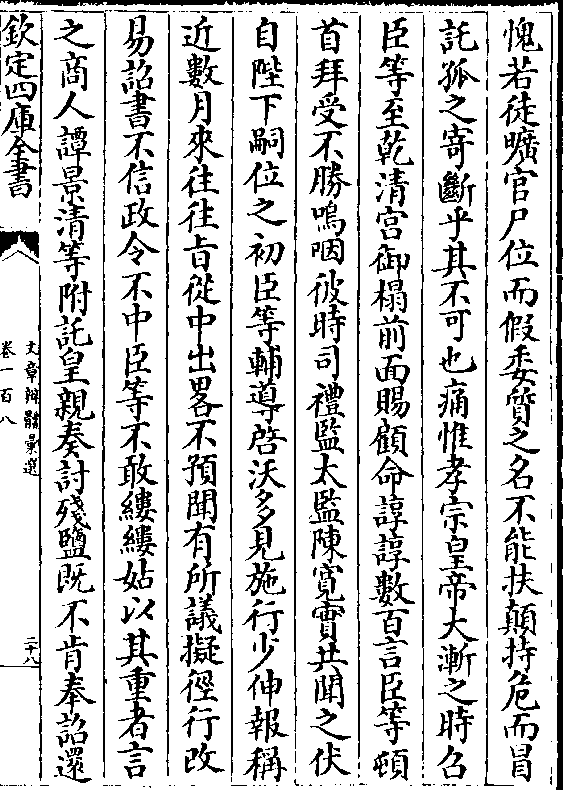 愧若徒曠官尸位而假委質之名不能扶顛持危而冒
託孤之寄斷乎其不可也痛惟孝宗皇帝大漸之時召
臣等至乾清宫御榻前面賜顧命諄諄數百言臣等頓
首拜受不勝嗚咽彼時司禮監太監陳寛實共聞之伏
自陛下嗣位之初臣等輔導啓沃多見施行少伸報稱
近數月來往往㫖從中出畧不預聞有所議擬徑行改
易詔書不信政令不中臣等不敢縷縷姑以其重者言
之商人譚景清等附託皇親奏討殘鹽既不肯奉詔還
欽定四庫全書
文章辨體彚選
卷一百八
二十八